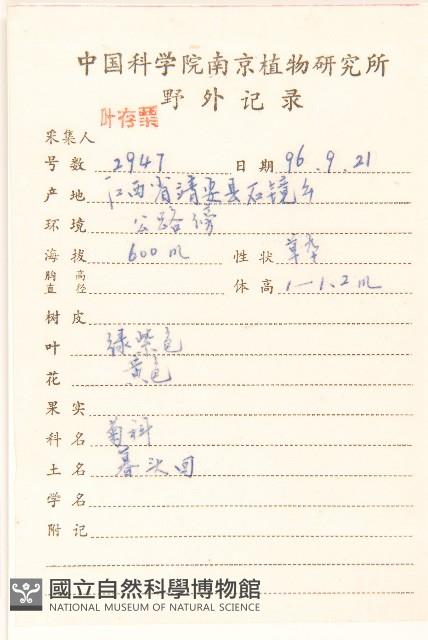 中国科学院南京植物研究所
野外记录
叶存票
采集人
号数 2947 日期 96.9.21
产地 江西省靖安县石镜乡
环境 公路傍
海拔 600m 性状 草本
胸高直径 体高 1—1.2m
树皮
叶 绿紫色
花 黄色
果实
科名 菊科
土名 幕头回
学名
附记
國立自然科學博物館
NATIONAL MUSEUM OF NATURAL SCIENCE